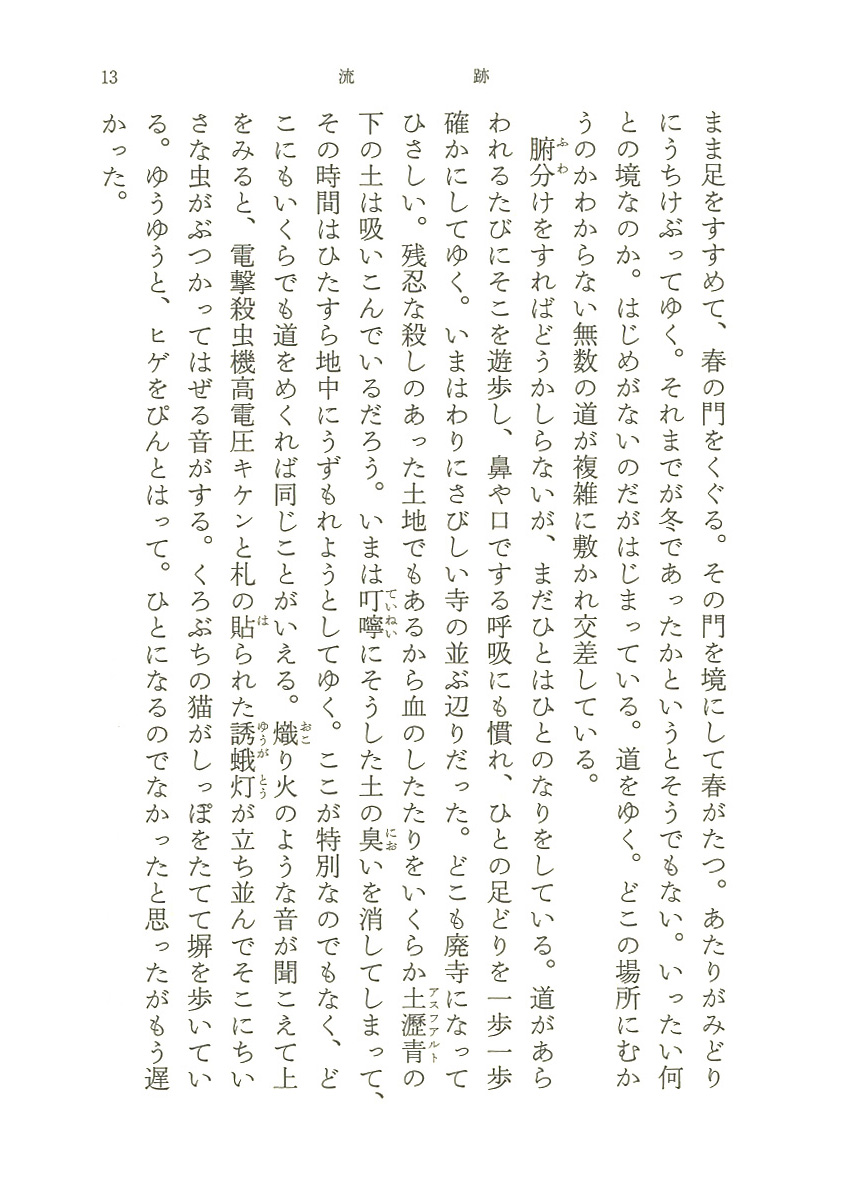 13
流跡
まま足をすすめて、春の門をくぐる。その門を境にして春がたつ。あたりがみどり
にうちけぶってゆく。それまでが冬であったかというとそうでもない。いったい何
との境なのか。はじめがないのだがはじまっている。道をゆく。どこの場所にむか
うのかわからない無数の道が複雑に敷かれ交差している。
腑分けをすればどうかしらないが、まだひとはひとのなりをしている。道があら
われるたびにそこを遊歩し、鼻や口でする呼吸にも慣れ、ひとの足どりを一歩一歩
確かにしてゆく。いまはわりにさびしい寺の並ぶ辺りだった。どこも廃寺になって
ひさしい。残忍な殺しのあった土地でもあるから血のしたたりをいくらか土瀝青の
下の土は吸いこんでいるだろう。いまは叮嚀にそうした土の臭いを消してしまって、
その時間はひたすら地中にうずもれようとしてゆく。ここが特別なのでもなく、ど
こにもいくらでも道をめくれば同じことがいえる。熾り火のような音が聞こえて上
をみると、電撃殺虫機高電圧キケンと札の貼られた誘蛾灯が立ち並んでそこにちい
さな虫がぶつかってはぜる音がする。くろぶちの猫がしっぽをたてて塀を歩いてい
る。ゆうゆうと、ヒゲをぴんとはって。ひとになるのでなかったと思ったがもう遅
かった。